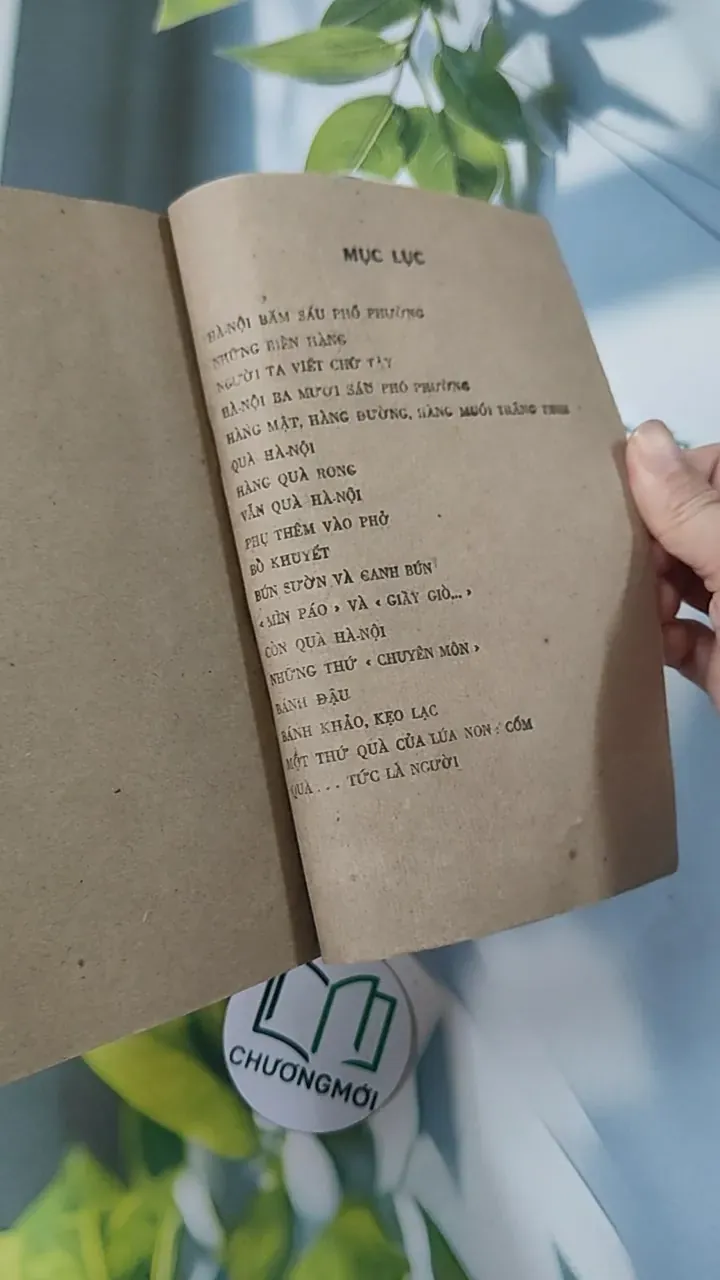 MỤC LỤC
HÀ-NỘI BĂM SÁU PHỐ PHƯỜNG
NHỮNG BIỂN HÀNG
NGƯỜI TA VIẾT CHỮ TÂY
HÀ-NỘI BA MƯƠI SÁU PHỐ PHƯỜNG
HÀNG MẬT, HÀNG ĐƯỜNG, HÀNG MUỐI TRẮNG TINH
QUÀ HÀ-NỘI
HÀNG QUÀ RONG
VẪN QUÀ HÀ-NỘI
PHỤ THÊM VÀO PHỞ
BỔ KHUYẾT
BÚN SƯỜN VÀ CANH BÚN
« MÌN PÁO » VÀ « GIẦY GIÒ... »
CÒN QUÀ HÀ-NỘI
NHỮNG THỨ « CHUYÊN MÔN »
BÁNH ĐẬU
BÁNH KHẢO, KẸO LẠC
MỘT THỨ QUÀ CỦA LÚA NON : CỐM
QUÀ... TỨC LÀ NGƯỜI
CHƯƠNGMỚI